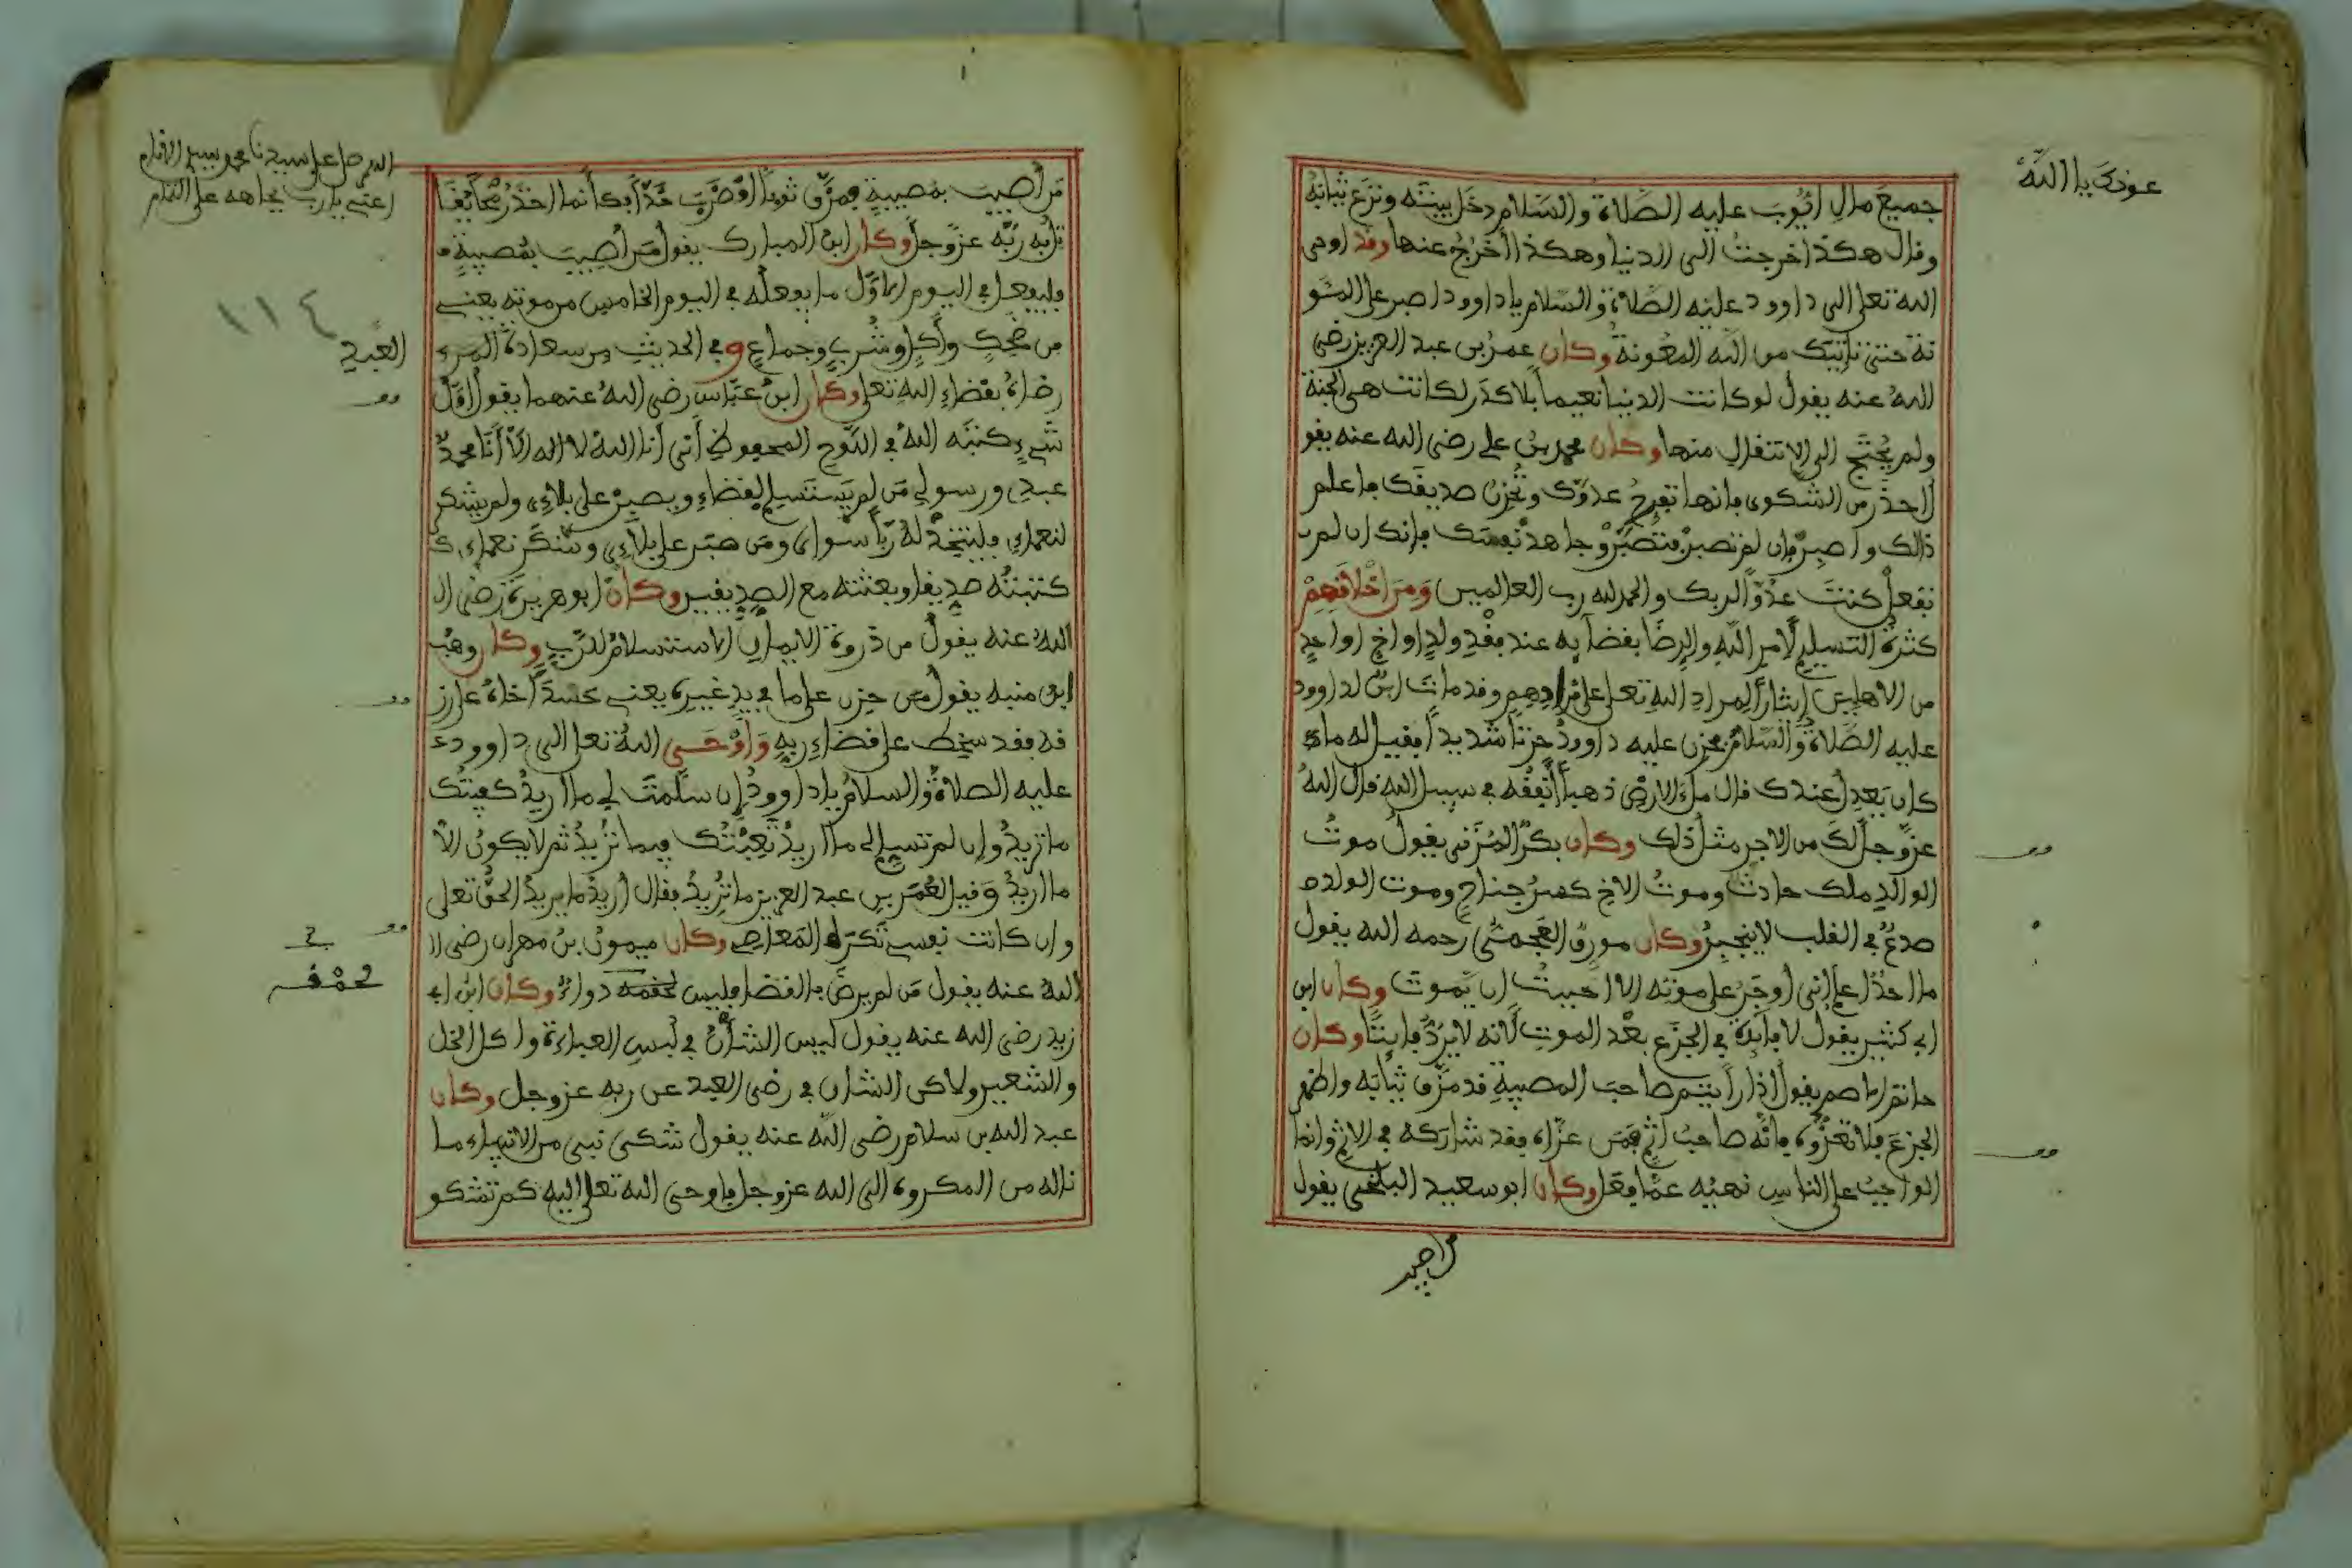 عونك يا الله
جميع مال أيوب عليه الصلاة والسلام دخل بيته ونزع ثيابه
وقال هكذا خرجت الى الدنيا وهكذا أخرج عنها وقد اوحى
الله تعلى الى داوود عليه الصلاة والسلام ياداوود اصبر على المئو
نة حتى تاتيك من الله المعونة وكان عمر بن عبد العزيز رضي
الله عنه يقول لو كانت الدنيا نعيما بلا كدر لكانت هي الجنة
ولم يحتج الى الانتقال منها وكان محمد بن علي رضي الله عنه يقو
ل احذر من الشكوى فانها تفرح عدوك وتحزن صديقك فاعلم
ذالك واصبر فإن لم تصبر فتصبر وجاهد نفسك فإنك ان لم
تفعل كنت عدوا لربك والحمد لله رب العالمين ومن أخلاقهم
كثرة التسليم لأمر الله والرضا بقضآيه عند فقد ولد او اخ او احد
من الاهلين إيثارا لمراد الله تعلى على مرادهم وقد مات ابن لداوود
عليه الصلاة والسلام فحزن عليه داوود حزنا شديدا فقيل له ماذا
كان يعدل عندك قال ملء الارض ذهبا أنفقه في سبيل الله قال الله
عز وجل لك من الاجر مثل ذلك وكان بكر المزني يقول موت
الوالد ملك حادث وموت الاخ كسر جناح وموت الولد
صدع في القلب لا ينجبر وكان مورق العجمي رحمه الله يقول
ما احد أعلم انني أوجر على موته الا احببت ان يموت وكان ابن
ابي كثير يقول لا فايدة في الجزع بعد الموت لأنه لا يرد فايتا وكان
حاتم الاصم يقول اذا رأيتم صاحب المصيبة قد مزق ثيابه واظهر
الجزع فلا تعزوه فانه صاحب اثم فمن عزاه فقد شاركه في الاثم وانما
الواجب على الناس نهيه عما فعل وكان ابو سعيد البلخي يقول
من اصيب
اللهم صل على سيدنا محمد
يا رب بجاهه على التمام
١١٤
من أصيب بمصيبة فمزق ثوبا او ضرب خدا فكأنما اخذ رمحا يقا
تل به ربه عز وجل وكان ابن المبارك يقول من أصيب بمصيبة
فليفعل في اليوم الاول ما يفعله في اليوم الخامس من موته يعني
من ضحك وأكل وشرب وجماع وفي الحديث من سعادة المرء
العبد
رضاه بقضاء الله تعلى وكان ابن عباس رضي الله عنهما يقول اول
شيء كتبه الله في اللوح المحفوظ أني أنا الله لا اله الا أنا محمد
عبدي ورسولي من لم يستسلم لقضاءي ويصبر على بلاءي ولم يشكر
لنعماءي فليتخذ له ربا سواي ومن صبر على بلاءي وشكر نعماءي
كتبته صديقا وبعثته مع الصديقين وكان ابو هريرة رضي ا
الله عنه يقول من ذروة الايمان الاستسلام للرب وكان وهب
ابن منبه يقول من حزن على ما في يد غيره يعني حسدا أخاه على رز
قه فقد سخط على قضاء ربه وأوحى الله تعلى الى داوود
عليه الصلاة والسلام ياداوود إن سلمت لي ما اريد كفيتك
ما تريد وإن لم تسلم لي ما اريد تعبتك فيما تريد ثم لا يكون الا
ما اريد وقيل لعمر بن عبد العزيز ما تريد فقال أريد ما يريد الحق تعلى
وان كانت نفسي تكره المعاصي وكان ميمون بن مهران رضي ا
الله عنه يقول من لم يرض بالقضا فليس لحمقه دواء وكان ابن ابي
لحمقه
زيد رضي الله عنه يقول ليس الشأن في لبس العباءة واكل الخل
والشعير ولاكن الشان في رضى العبد عن ربه عز وجل وكان
عبد الله بن سلام رضي الله عنه يقول شكى نبي من الانبياء ما
ناله من المكروه الى الله عز وجل فاوحى الله تعلى اليه كم تشكو